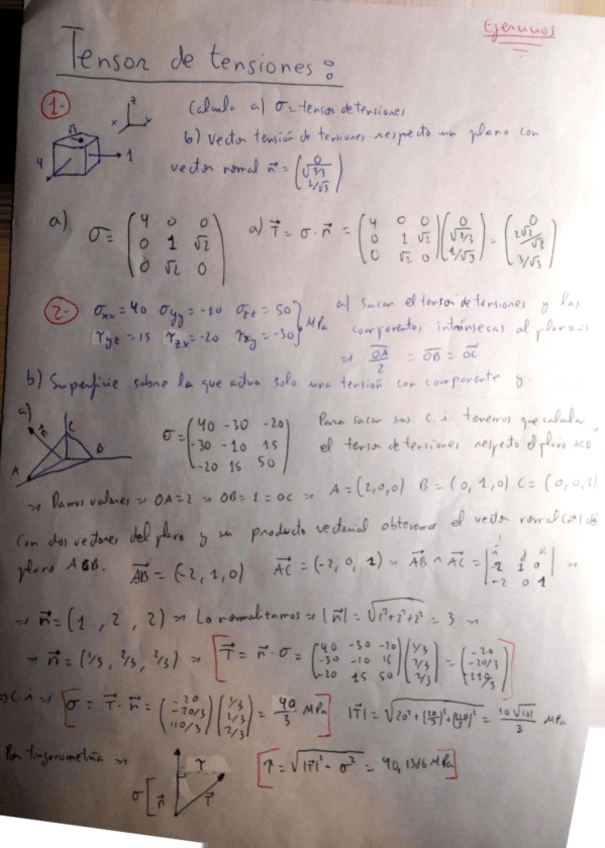 Ejercicios
Tensor de tensiones:
1- Calcula a) σ = tensor de tensiones
z x y
√2 4 1
b) Vector tensión de tensiones respecto un plano con
vector normal n⃗ = (0 √2/3 1/√3)
a) σ = (4 0 0 / 0 1 √2 / 0 √2 0) a) T⃗ = σ · n⃗ = (4 0 0 / 0 1 √2 / 0 √2 0) (0 √2/3 1/√3) = (0 2√2/√3 3/√3)
2- σxx = 40 σyy = -10 σzz = 50 } MPa a) Sacar el tensor de tensiones y las
τyz = 15 τzx = -20 τxy = -30 componentes intrínsecas al plano ⇒
⇒ OA/2 = OB = OC
b) Superficie sobre la que actua solo una tensión con componente y.
a) n⃗ A B C
σ = (40 -30 -20 / -30 -10 15 / -20 15 50) Para sacar sus C. i. tenemos que calcular
el tensor de tensiones respecto el plano
⇒ Damos valores ⇒ OA = 2 ⇒ OB = 1 = OC ⇒ A = (2,0,0) B = (0,1,0) C = (0,0,1)
Con dos vectores del plano y su producto vectorial obtenemos el vector normal del
plano AB = (-2, 1, 0) AC = (-2, 0, 1) ⇒ AB ∧ AC = |i j k / -2 1 0 / -2 0 1| ⇒
⇒ n⃗ = (1, 2, 2) ⇒ Lo normalizamos ⇒ |n⃗| = √1²+2²+2² = 3 ⇒
⇒ n⃗ = (1/3, 2/3, 2/3) ⇒ [T⃗ = n⃗ · σ = (40 -30 -20 / -30 -10 15 / -20 15 50) (1/3 2/3 2/3) = (-20 -20/3 110/3)]
⇒ C. i ⇒ [σ = T⃗ · n⃗ = (-20 -20/3 110/3) (1/3 2/3 2/3) = 40/3 MPa] |T⃗| = √20² + (20/3)² + (110/3)² = MPa
Por trigonometría ⇒ σ [ n⃗ τ T⃗ [τ = √|T⃗|² - σ² = 40,1386 MPa]